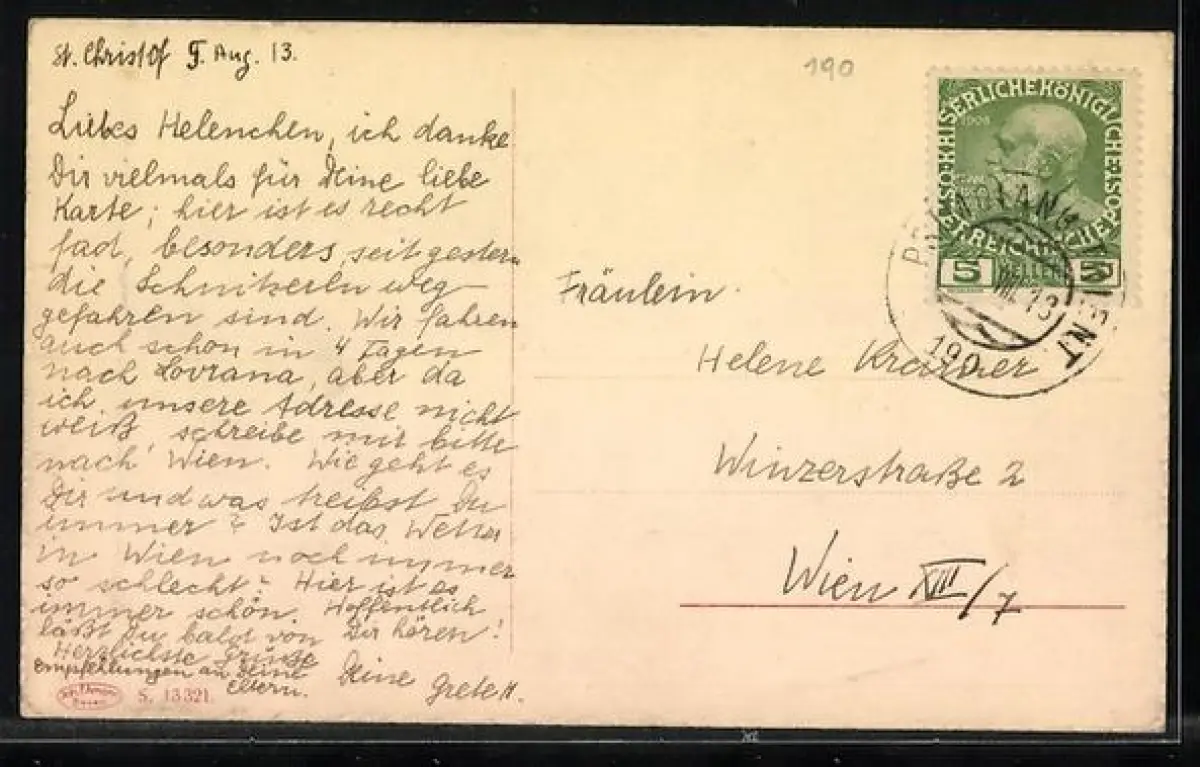 St. Christof 5. Aug. 13.
190
Liebes Helenchen, ich danke
Dir vielmals für Deine liebe
Karte; hier ist es recht
fad, besonders, seit gestern
die Schnitzerln weg-
gefahren sind. Wir fahren
auch schon in 4 Tagen
nach Lovrana, aber da
ich unsere Adresse nicht
weiß, schreibe mir bitte
nach Wien. Wie geht es
Dir und was treibst Du
immer? Ist das Wetter
in Wien noch immer
so schlecht? Hier ist es
immer schön. Hoffentlich
läßt Du bald von Dir hören!
Herzlichste Grüße
Empfehlungen an Deine
Eltern.
Deine Grete H.
S. 13321.
KAISERLICHE KÖNIGLICHE ÖSTERREICHISCHE POST
1908
5 HELLER 5
VIII 13
190
Fräulein
Helene
Winzerstraße 2
Wien XIII/7